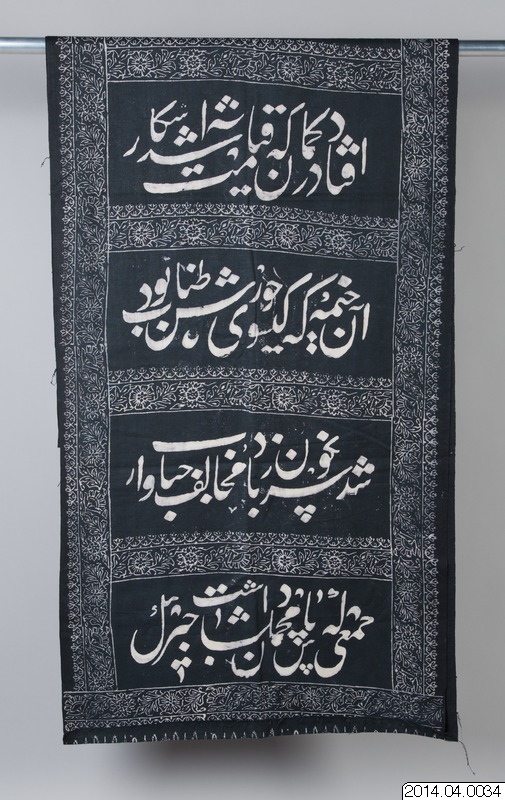 افتاد در گمان که قیامت شد آشکار
آن خیمه که گیسوی حورش طناب بود
شد سرنگون ز باد مخالف حباب وار
جمعی که پاس محملشان داشت جبرئیل
2014.04.0034